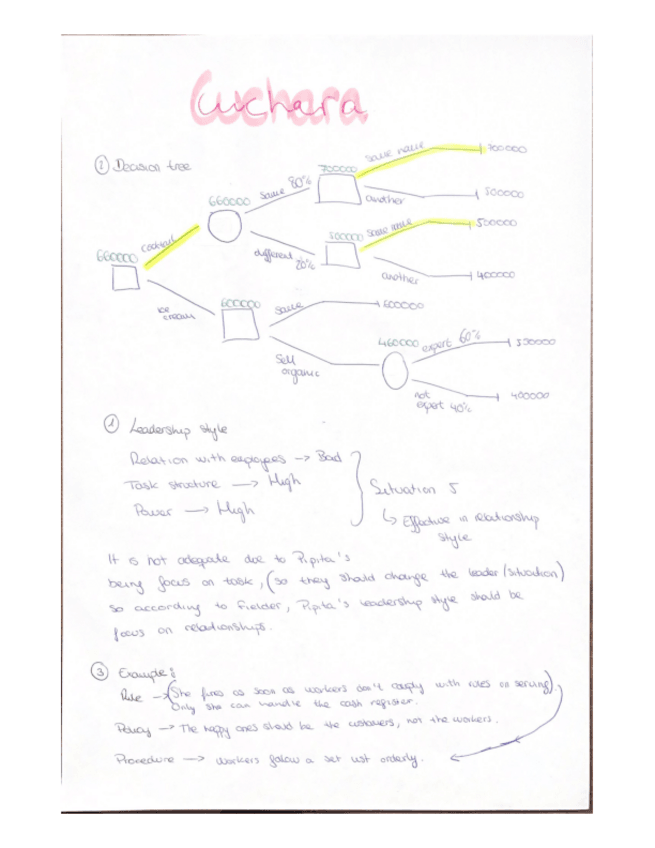 Cuchara
② Decision tree
660000
cocktail
660000
same 80%
700000
same name
700000
another
500000
different 20%
500000
same name
500000
another
400000
ice cream
600000
same
600000
sell organic
460000
expert 60%
500000
not expert 40%
400000
① Leadership style
Relation with employees → Bad
Task structure → High
Power → High
Situation 5
↳ Effective in relationship
style
It is not adequate due to Pipita's
being focus on task, (so they should change the leader/situation)
so according to Fielder, Pipita's leadership style should be
focus on relationships.
③ Example:
Rule → (She fires as soon as workers don't comply with rules on serving).
Only she can handle the cash register.
Policy → The happy ones should be the customers, not the workers.
Procedure → Workers follow a set list orderly.